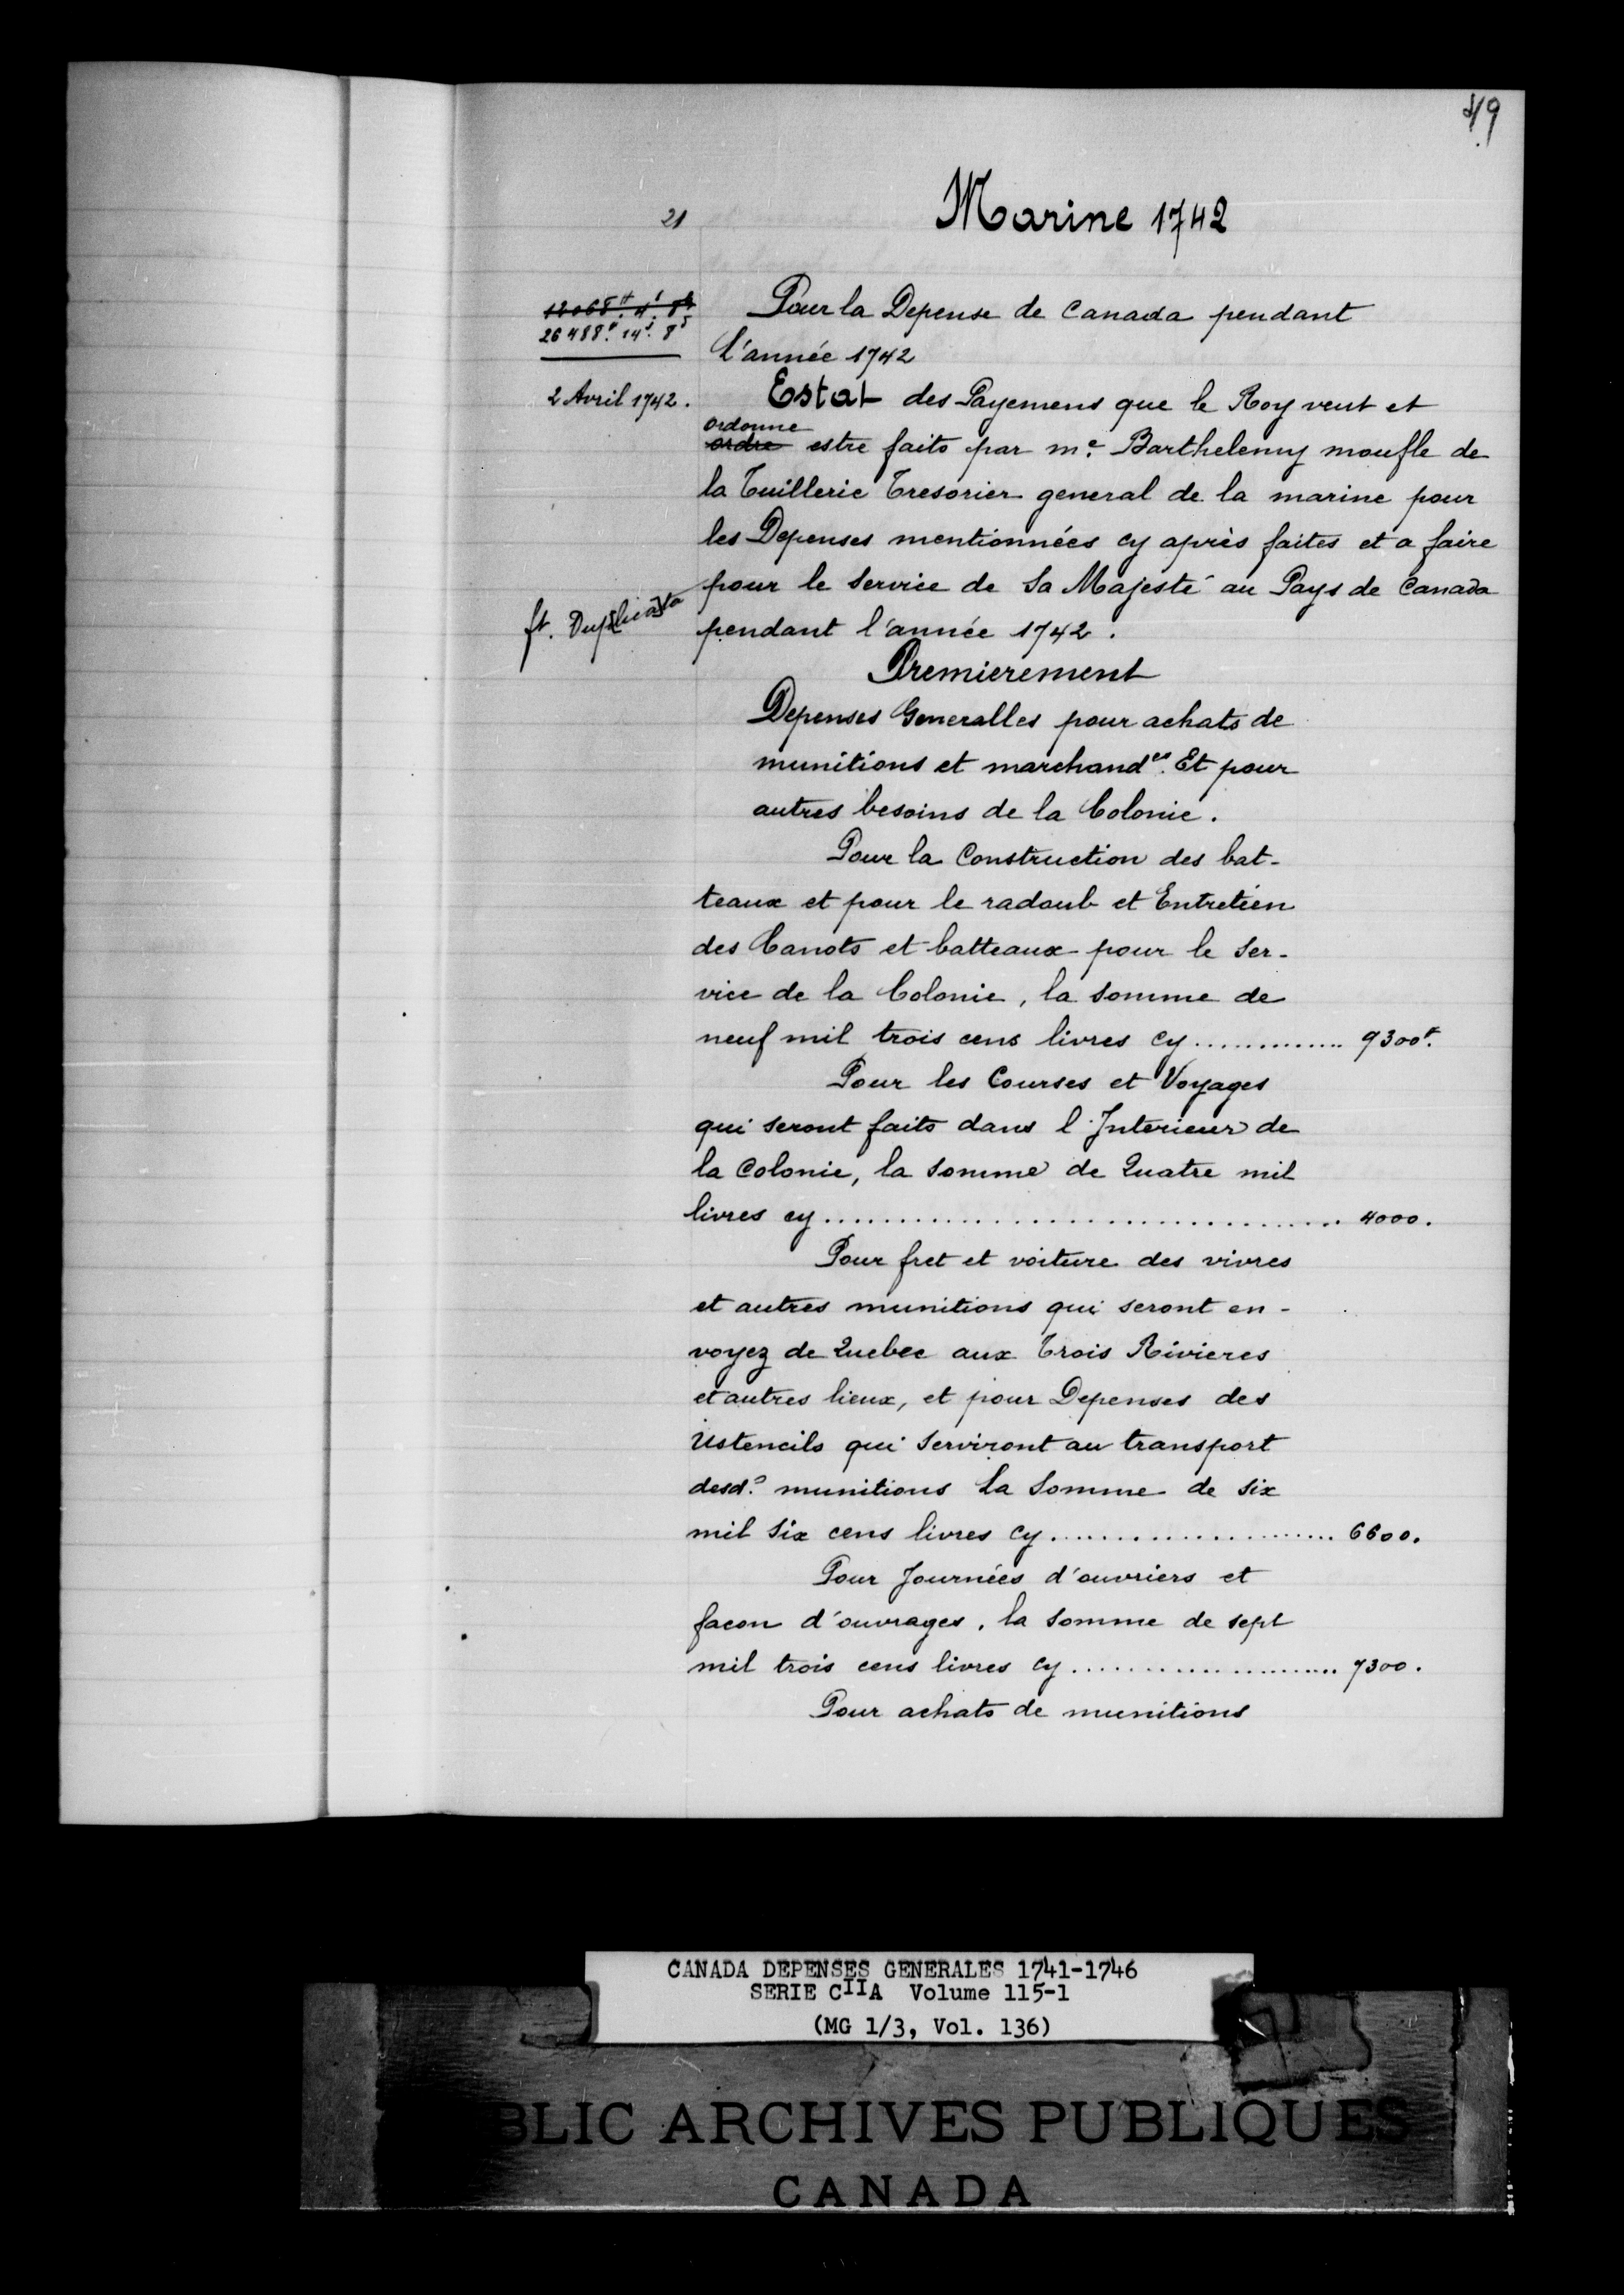 49
21
Marine 1742
12068# 4s 8d
26488# 14s 8d
Pour la Depense de Canada pendant
l'année 1742
2 Avril 1742.
Estat des Payemens que le Roy veut et
ordonne
ordre estre faits par me. Barthelemy moufle de
la Tuillerie Tresorier general de la marine pour
les Depenses mentionnées cy après faites et a faire
pour le Service de Sa Majesté au Pays de Canada
ft. Dup[lica]ta
pendant l'année 1742.
Premierement
Depenses Generalles pour achats de
munitions et marchandes. Et pour
autres besoins de la Colonie.
Pour la Construction des bat-
teaux et pour le radoub et Entretien
des Canots et batteaux pour le Ser-
vice de la Colonie, la Somme de
neuf mil trois cens livres cy ............. 9300#.
Pour les Courses et Voyages
qui seront faits dans l'Interieur de
la Colonie, la Somme de Quatre mil
livres cy .................................. 4000.
Pour fret et voiture des vivres
et autres munitions qui seront en-
voyez de Quebec aux Trois Rivieres
et autres lieux, et pour Depenses des
Ustencils qui Serviront au transport
desd.s munitions la Somme de Six
mil Six cens livres cy .................... 6600.
Pour Journées d'ouvriers et
facon d'ouvrages, la Somme de Sept
mil trois cens livres cy .................... 7300.
Pour achats de munitions
CANADA DEPENSES GENERALES 1741-1746
SERIE CIIA Volume 115-1
(MG 1/3, Vol. 136)
BLIC ARCHIVES PUBLIQUES
CANADA